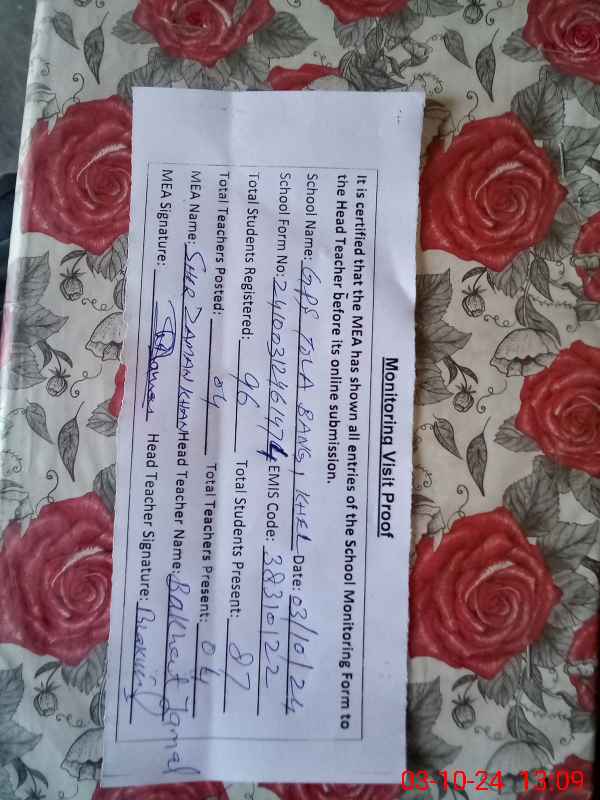 Monitoring Visit Proof
It is certified that the MEA has shown all entries of the School Monitoring Form to
the Head Teacher before its online submission.
School Name: GPS TOLA BANGI KHEL Date: 03/10/24
School Form No: EMIS Code:
Total Students Registered: 96 Total Students Present: 87
Total Teachers Posted: 04 Total Teachers Present: 04
MEA Name: SHER ZAMAN KHAN Head Teacher Name: Bakhat Iqnal
MEA Signature: Head Teacher Signature:
03-10-24 13:09